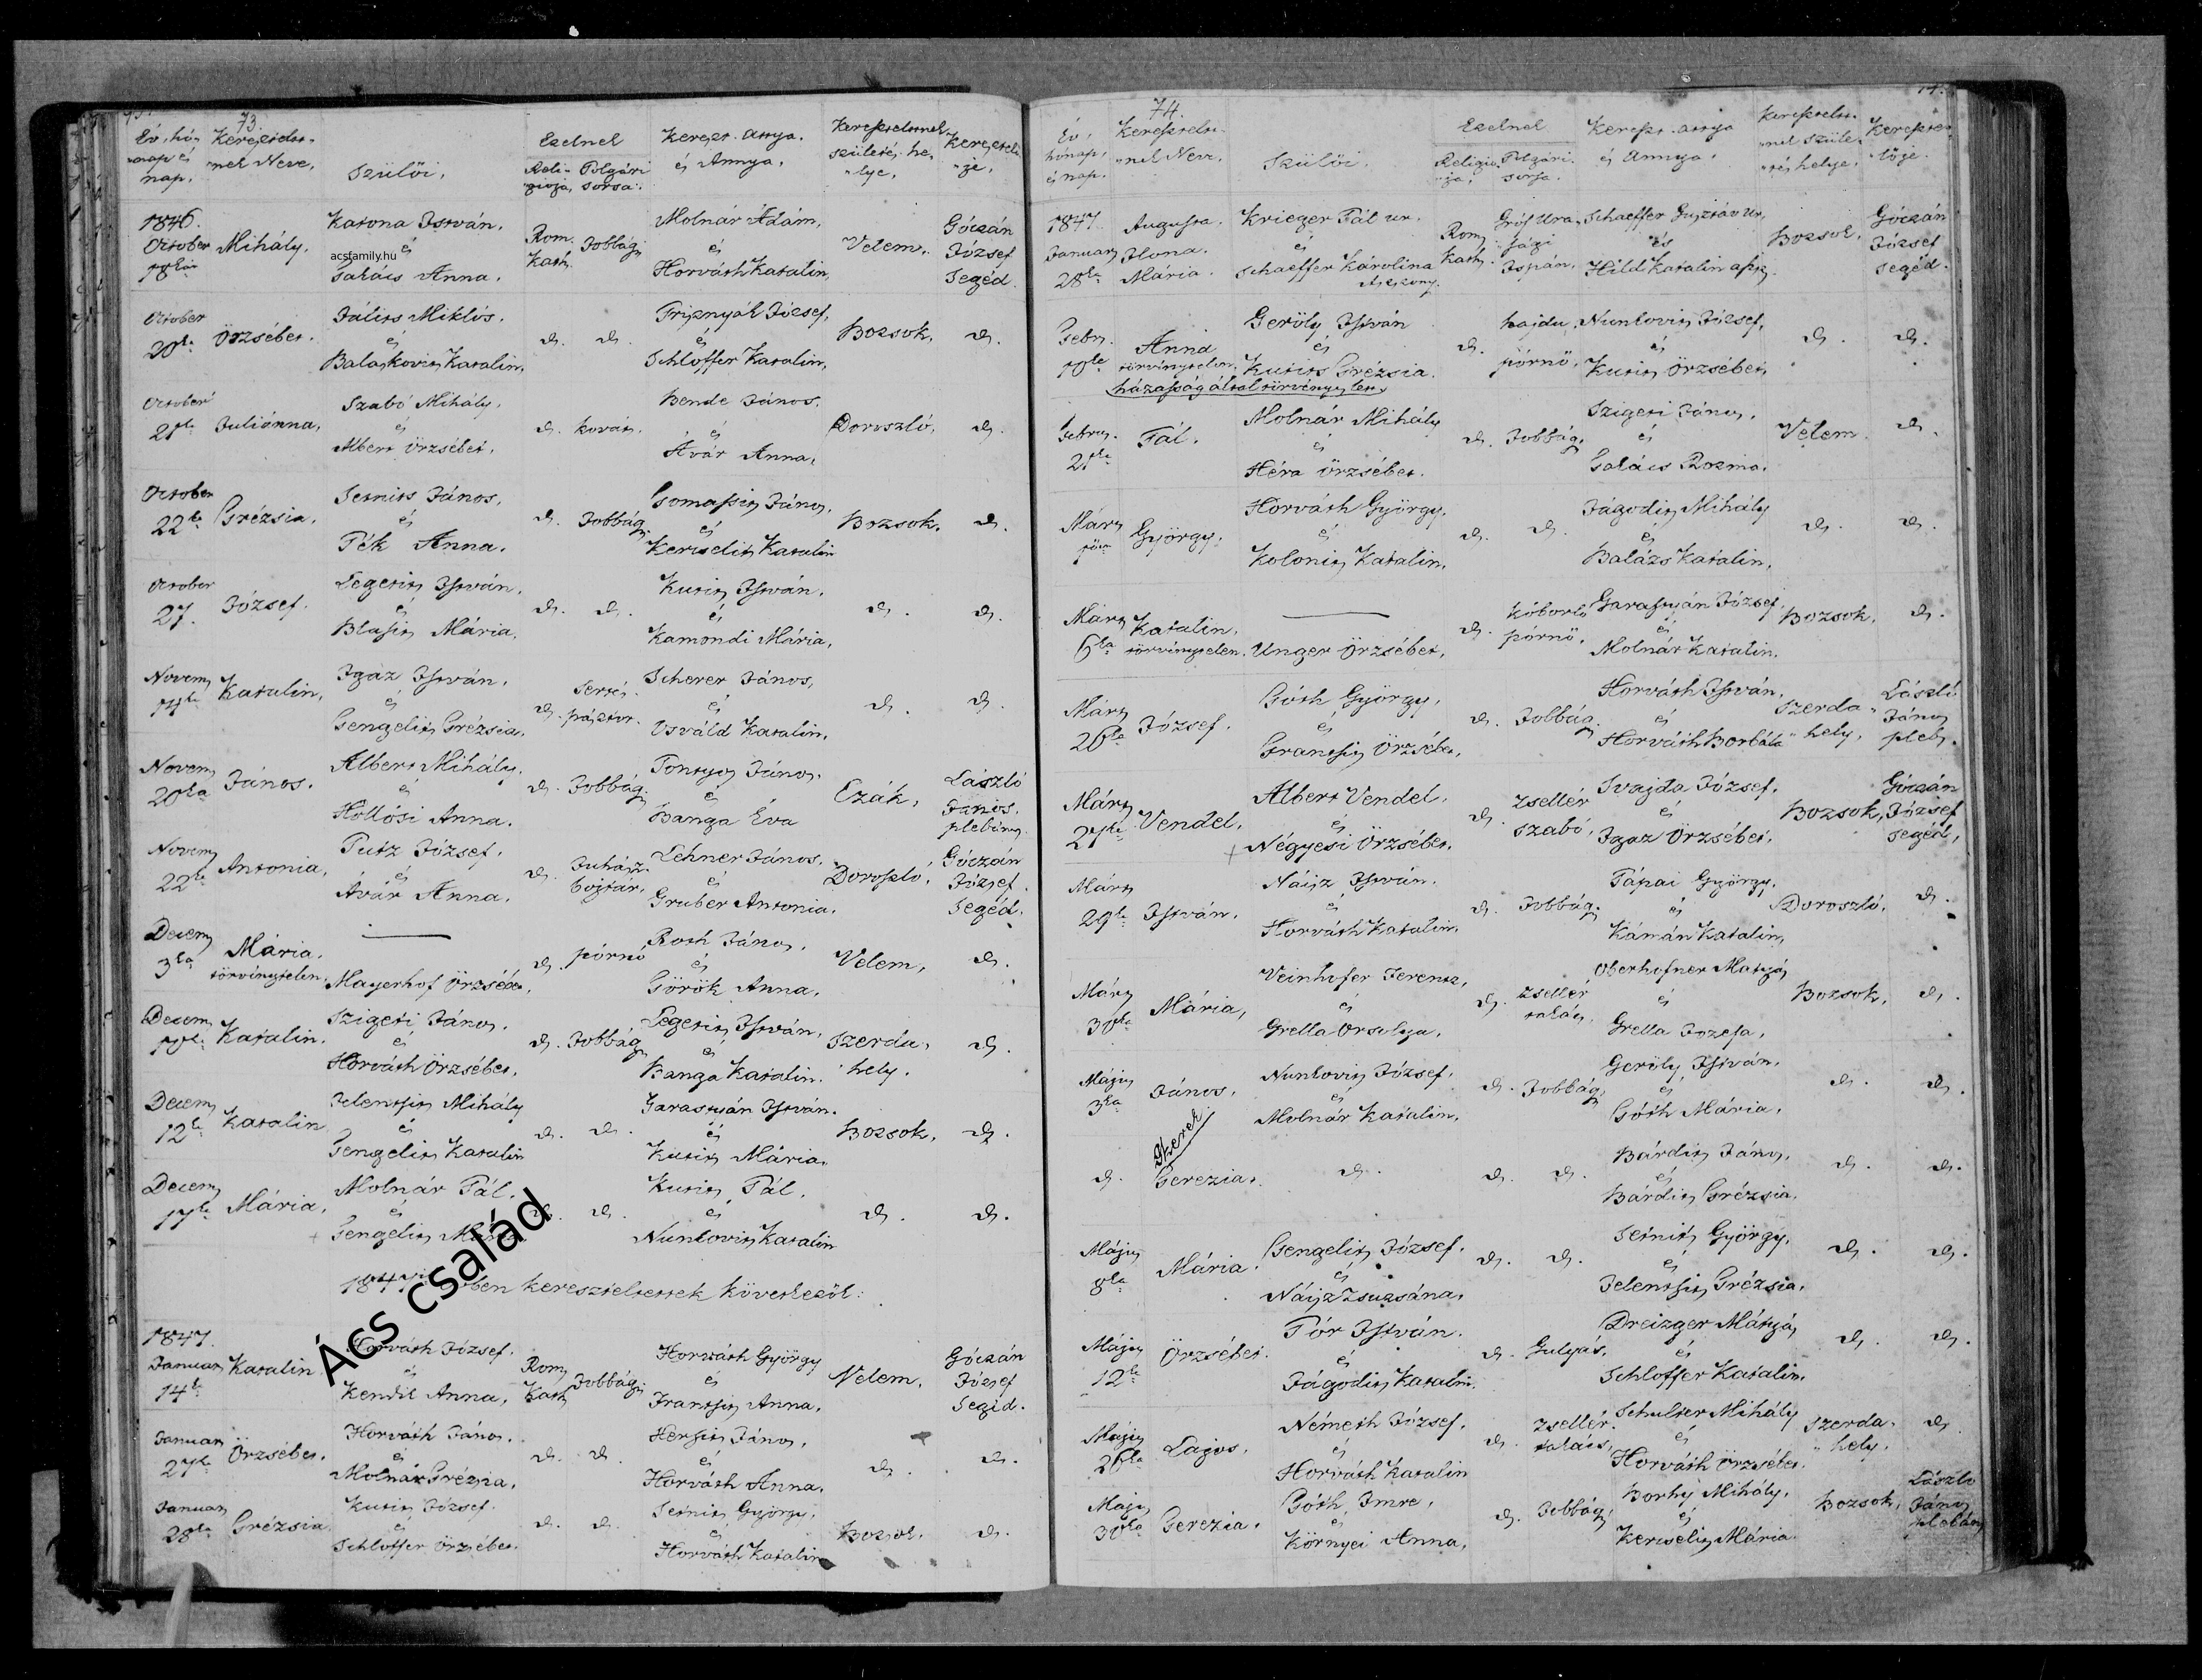 73.
Év, hó,
nap és
nap.
Keresztelt-
nek Neve,
Szülői,
Ezelnek
Reli-
gioja,
Polgári
sorsa.
Kereszt. attya.
és Annya,
születés he-
lye,
1846.
October
Mihály.
Katona István,
és
Takács Anna.
Rom.
Kath.
Jobbágy
Molnár Ádám,
és
Horváth Katalin,
Velem,
Góczán
József
Segéd.
acsfamily.hu
October
20ka
Örzsébet.
Miklós.
és
Balaskovits Katalin,
d.
d.
József,
és
Schlosser Katalin,
Bozsok,
d.
October
Juliánna,
Szabó Mihály,
és
Albert Örzsébet,
d.
kováts.
Bende János,
és
Avár Anna,
Doroszló,
d.
October
22ka
Trézsia,
János,
és
Pék Anna.
d.
Jobbágy
János,
és
Kertselits Katalin
Bozsok,
d.
October
27.
József.
Legetits István,
és
Mária,
d.
d.
Kutits István.
és
Kamondi Mária,
d.
d.
Novem
Katalin,
Igaz István,
és
Tengelits Trézsia,
d.
sertés
pásztor.
Scherer János,
és
Osváld Katalin,
d.
d.
Novem
20ka
János.
Albert Mihály.
és
Hollósi Anna.
d.
Jobbágy
Pontyos János.
és
Banga Éva
Czák,
László
János.
plebános
Novem
22ka
Antonia,
Putz József,
és
Avár Anna.
d.
Juhász
bojtár,
Lehner János.
és
Gruber Antonia.
Doroszló,
Góczán
József
Segéd.
Decem
3ka
Mária.
törvénytelen,
Mayerhof Örzsébet,
d.
pórnő
Roth János,
és
Török Anna,
Velem,
d.
Decem
Katalin.
Szigeti János.
és
Horváth Örzsébet,
d.
Jobbágy
Legetits István,
és
Banga Katalin.
Szerda,
hely.
d.
Decem
12ke
Katalin
Jelentsits Mihály
és
Tengelits Katalin
d.
d.
Garastyán István.
és
Kutits Mária,
Bozsok,
d.
Decem
17ke
Mária,
Molnár Pál.
és
Tengelits
d.
d.
Kutits Pál,
és
Nunkovits Katalin
d.
d.
Ács család
kereszteltettek következők:
1847.
Januar
14ke
Katalin
Horváth József.
és
Kendik Anna,
Rom
Kath
Jobbágy
Horváth György
és
Frantsits Anna,
Velem.
Góczán
József
Segéd.
Januar
27ke
Örzsébet.
Horváth János.
és
Molnár Trézsia,
d.
d.
Hersits János,
és
Horváth Anna,
d.
d.
Januar
28ka
Trézsia
Kutits József.
és
Schlosser Örzsébet.
d.
d.
György,
és
Horváth Katalin
Bozsok,
d.
74.
Év,
hónap,
és nap.
Keresztelt-
nek Neve,
Szülői.
Ezelnek
Religio-
ja,
Polgári
sorsa.
Kereszt. attya
és Annya,
Keresztelt-
nek Szüle-
tés helye,
Keresztel-
tője.
1847.
Januar
28ka
Augusta.
Ilona.
Mária.
Krieger Pál ur.
és
Schaeffer Károlina
Asszony.
Rom
Kath
Gróf Ura-
sági
Ispán,
Schaeffer Gusztáv Ur,
és
Hild Katalin assz.
Bozsok,
Góczán
József
segéd.
Febr.
Anna
törvénytelen,
házasság által törvényes lett
Geröly István
és
Kutits Trezsia.
d.
hajdu,
pórnő,
Nunkovits József,
és
Kutits Örzsébet,
d.
d.
Febru.
Pál.
Molnár Mihály
és
Héra Örzsébet.
d.
Jobbágy
Szigeti János,
és
Takács Rozina.
Velem
d.
Márts
György.
Horváth György.
és
Kolonits Katalin,
d.
d.
Jágodits Mihály
és
Balázs Katalin,
d.
d.
Márts
6ka
Katalin,
törvénytelen.
Unger Örzsébet,
d.
kóborló
pórnő.
Garastyán József,
és
Molnár Katalin.
Bozsok,
d.
Márts
26ka
József.
Tóth György,
és
Frantsits Örzsébet,
d.
Jobbágy
Horváth István,
és
Horváth Borbála
Szerda-
hely,
László
János
pleb.
Márts
27ke
Vendel.
Albert Vendel.
és
Négyesi Örzsébet.
d.
Zsellér
szabó,
Svajda József,
és
Igaz Örzsébet.
Bozsok,
Góczán
József
segéd,
Márts
29ke
István.
Náisz István.
és
Horváth Katalin.
d.
Jobbágy
Pápai György,
és
Kámán Katalin,
Doroszló,
d.
Márts
30ka
Mária,
Veinhofer Ferentz,
és
Grella Orsolya,
d.
Zsellér
takáts
Oberhofner Mátyás
és
Grella Jozefa,
Bozsok,
d.
Május
3ka
János,
Nunkovits József,
és
Molnár Katalin,
d.
Jobbágy
Geröly István,
és
Tóth Mária,
d.
d.
Ikerek
d.
Terezia,
d.
d.
d.
Bárdits János,
és
Bárdits Trézsia,
d.
d.
Május
8ka
Mária.
Tengelits József.
és
Náisz Zsuzsána,
d.
d.
György,
és
Jelentsits Trézsia,
d.
d.
Május
12ke
Örzsébet.
Pór István.
és
Jágodits Katalin.
d.
Gulyás,
Dreizger Mátyás
és
Schlosser Katalin,
d.
d.
Május
26ka
Lajos,
Németh József,
és
Horváth Katalin
d.
Zsellér
takács,
Schulter Mihály
és
Horváth Örzsébet.
Szerda-
hely.
d.
Május
30ka
Terezia.
Tóth Imre,
és
Környei Anna,
d.
Jobbágy
Borhy Mihály,
és
Kertselits Mária
Bozsok,
László
János
plebános